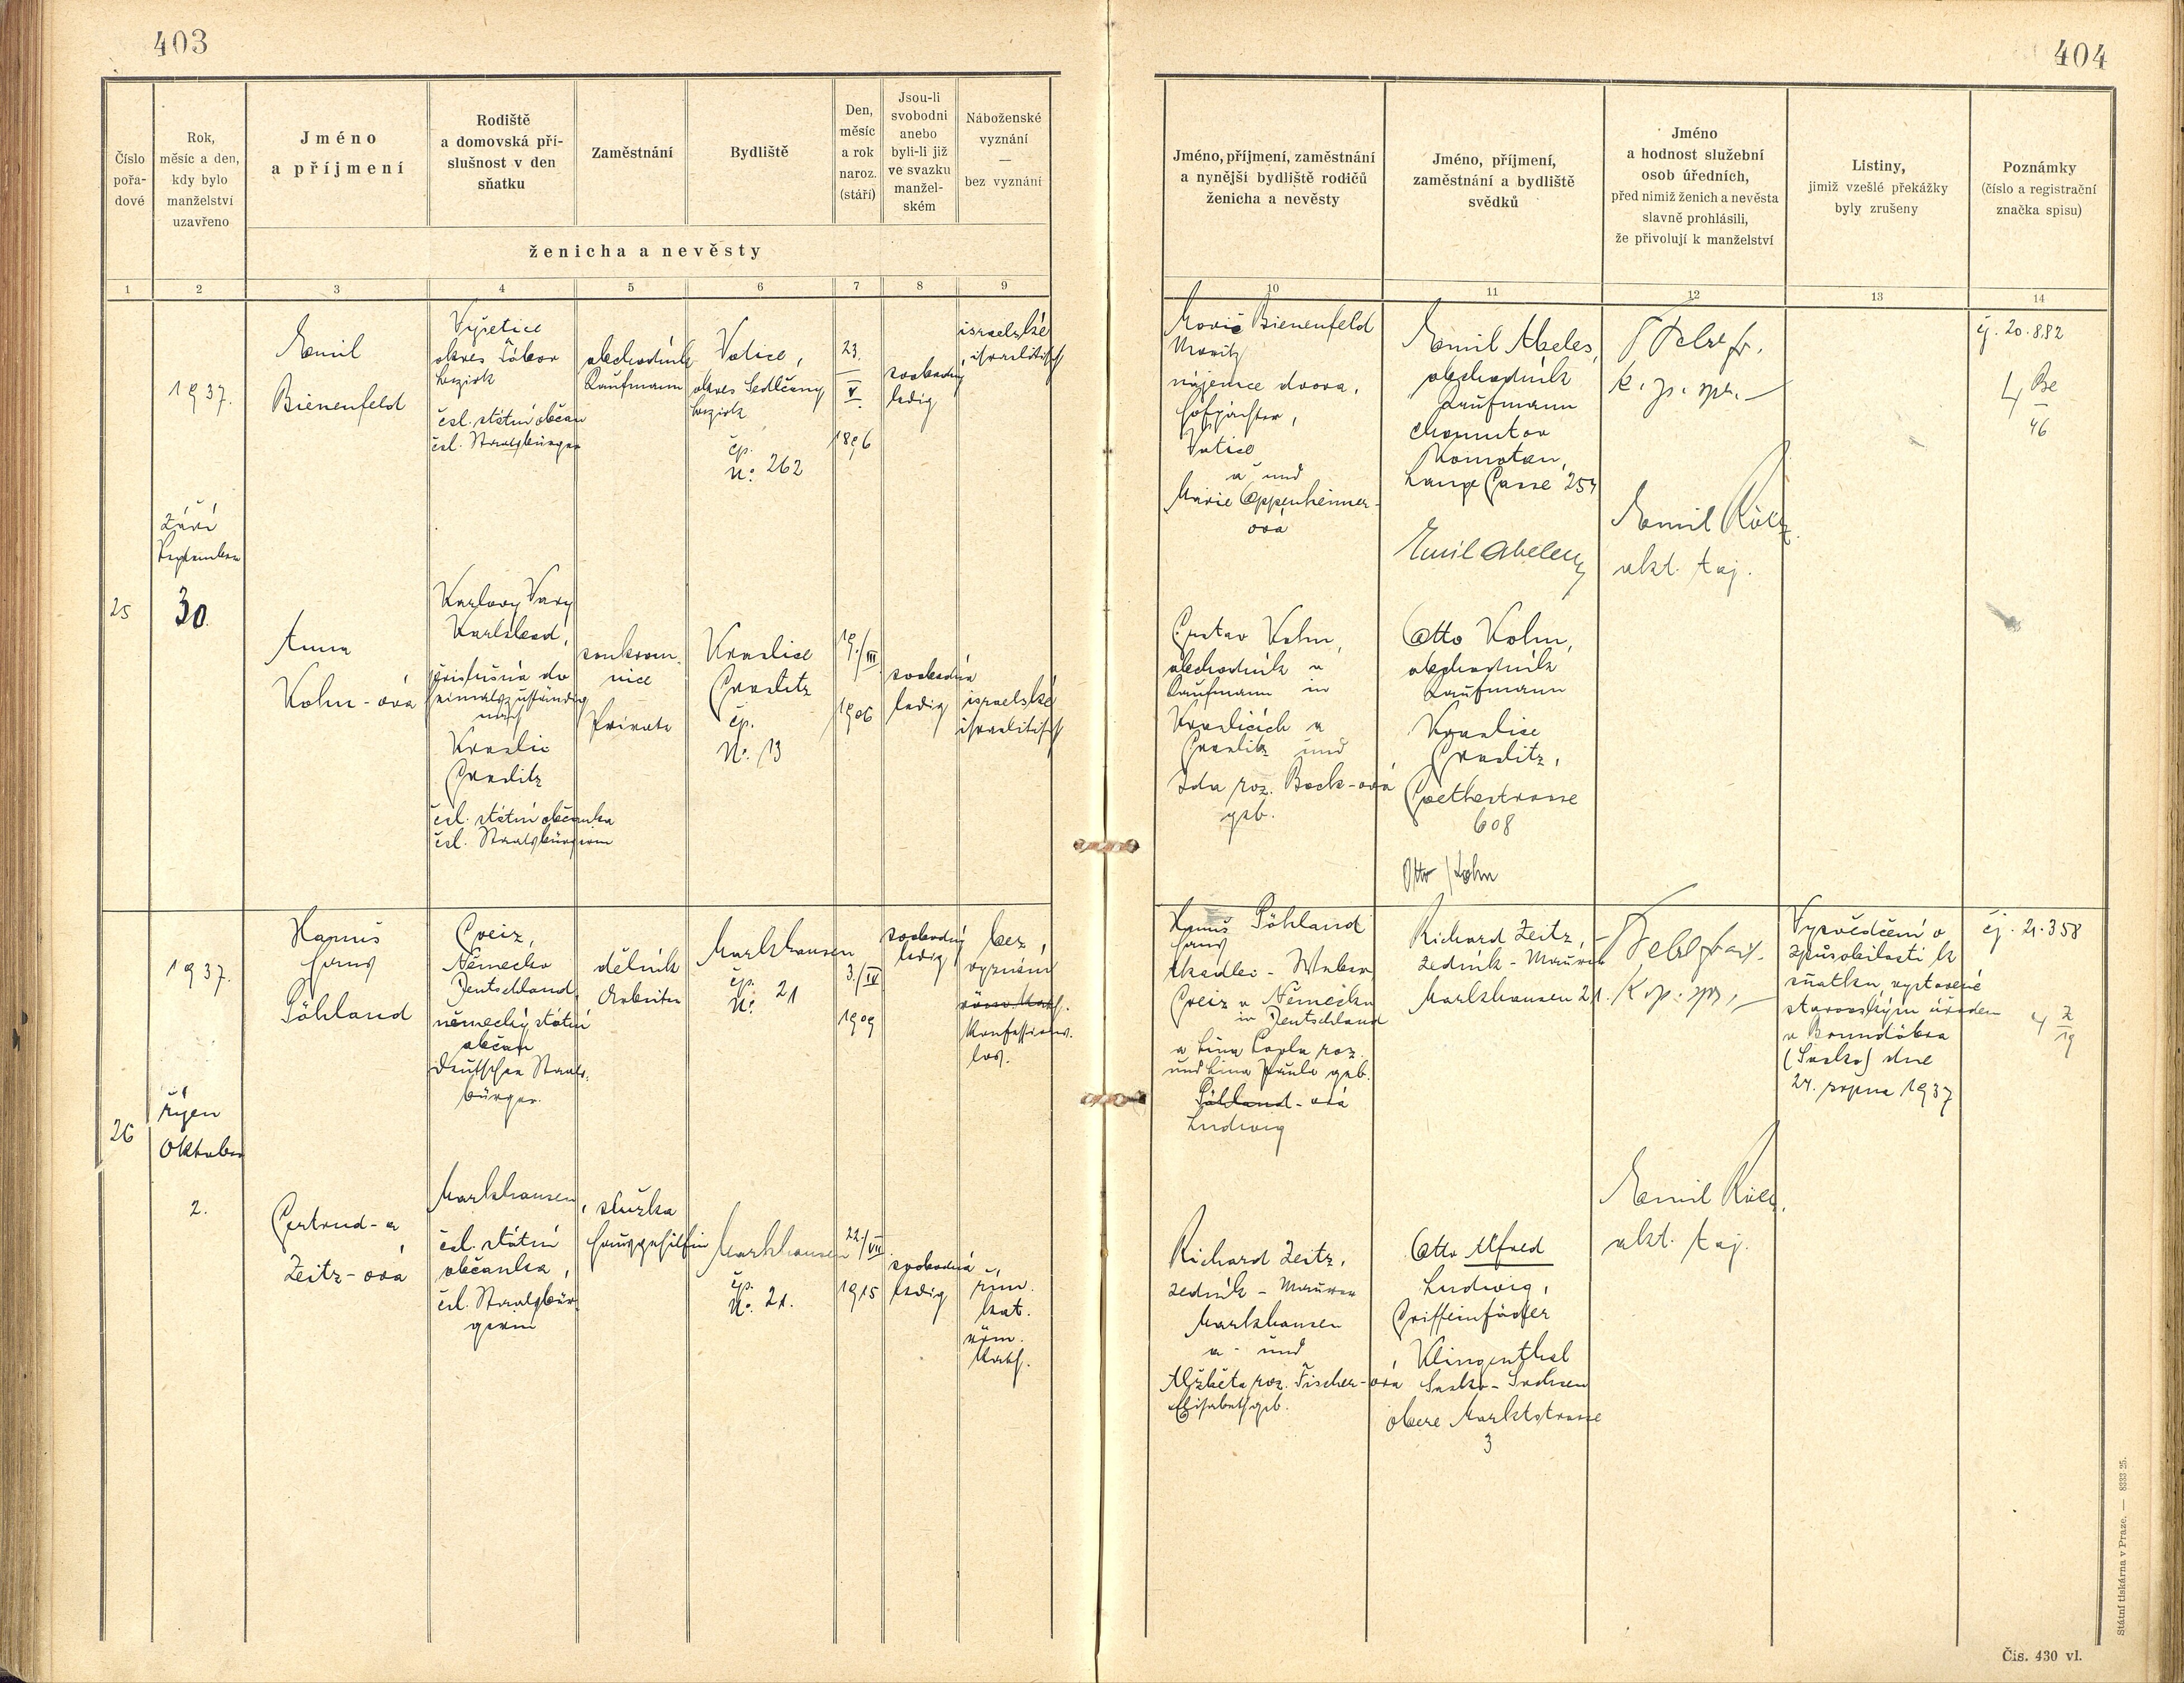 403
404
Číslo pořa-dové
Rok, měsíc a den, kdy bylo manželství uzavřeno
Jméno a příjmení
Rodiště a domovská pří-slušnost v den sňatku
Zaměstnání
Bydliště
Den, měsíc a rok naroz. (stáří)
Jsou-li svobodni anebo byli-li již ve svazku manžel-ském
Náboženské vyznání — bez vyznání
ženicha a nevěsty
Jméno, příjmení, zaměstnání a nynější bydliště rodičů ženicha a nevěsty
Jméno, příjmení, zaměstnání a bydliště svědků
Jméno a hodnost služební osob úředních, před nimiž ženich a nevěsta slavně prohlásili, že přivolují k manželství
Listiny, jimiž vzešlé překážky byly zrušeny
Poznámky (číslo a registrační značka spisu)
1 2 3 4 5 6 7 8 9 10 11 12 13 14
25
1937.
Září
September
30.
Emil
Bienenfeld
okres Tábor
bezirk
čsl. státní občan
čsl. Staatsbürger
obchodník
Kaufmann
Votice,
okres Sedlčany
bezirk
čp.
N: 262
23.
V.
1896
svobodný
ledig
israelské
israelitisch
Bienenfeld
Moritz
nájemce dvora,
Hofpächter,
Votice
a und
Marie Oppenheimer-
ová
Emil Abeles,
obchodník
Kaufmann
Chomutov
Komotau,
Lange Gasse 254
Emil Abeles
k. p. spr.
Emil
akt. taj.
čj. 20.882
4 Be
46
Anna
Kohn-ová
Karlovy Vary
Karlsbad,
příslušná do
heimatszuständig
nach
Kraslic
Graslitz
čsl. státní občanka
čsl. Staatsbürgerin
soukrom-
nice
Private
Kraslice
Graslitz
čp.
N: 13
19./III
1906
svobodná
ledig
israelské
israelitisch
Gustav Kohn,
obchodník v
Kaufmann in
Kraslicích a
Graslitz und
Ida roz. Bock-ová
geb.
Otto Kohn,
obchodník
Kaufmann
Kraslice
Graslitz,
Goethestrasse
608
Otto Kohn
26
1937.
říjen
Oktober
2.
Hanuš
Hans
Pöhland
Greiz,
Německo
Deutschland
německý státní
občan
deutscher Staats-
bürger.
dělník
Arbeiter
Markhausen
čp.
N: 21
3./IV
1909
svobodný
ledig
bez
vyznání
röm. kath.
Konfessions-
los.
Hanuš Pöhland
Hans
tkadlec - Weber
Greiz v Německu
in Deutschland
a Lina Paula roz.
und Lina Paula geb.
Pöhland-ová
Ludwig
Richard Zeitz,
zedník - Maurer
Markhausen 21.
k. p. spr.
Emil
akt. taj.
Vysvědčení o
způsobilosti k
sňatku, vystavené
starostským úřadem
v Brunndöbra
(Sasko) dne
24. srpna 1937
čj. 21.358
4 Z
19
Gertrud-a
Zeitz-ová
Markhausen,
čsl. státní
občanka,
čsl. Staatsbür-
gerin
služka
Hausgehilfin
Markhausen
čp.
N: 21.
22./VII.
1915
svobodná
ledig
řím.
kat.
röm.
kath.
Richard Zeitz,
zedník - Maurer
Markhausen
a - und
Alžběta roz. Fischer-ová
Elisabeth geb.
Otto Alfred
Ludwig,
Klingenthal
Sasko - Sachsen
obere Marktstrasse
3
Státní tiskárna v Praze. — 8333-25.
Čís. 430 vl.